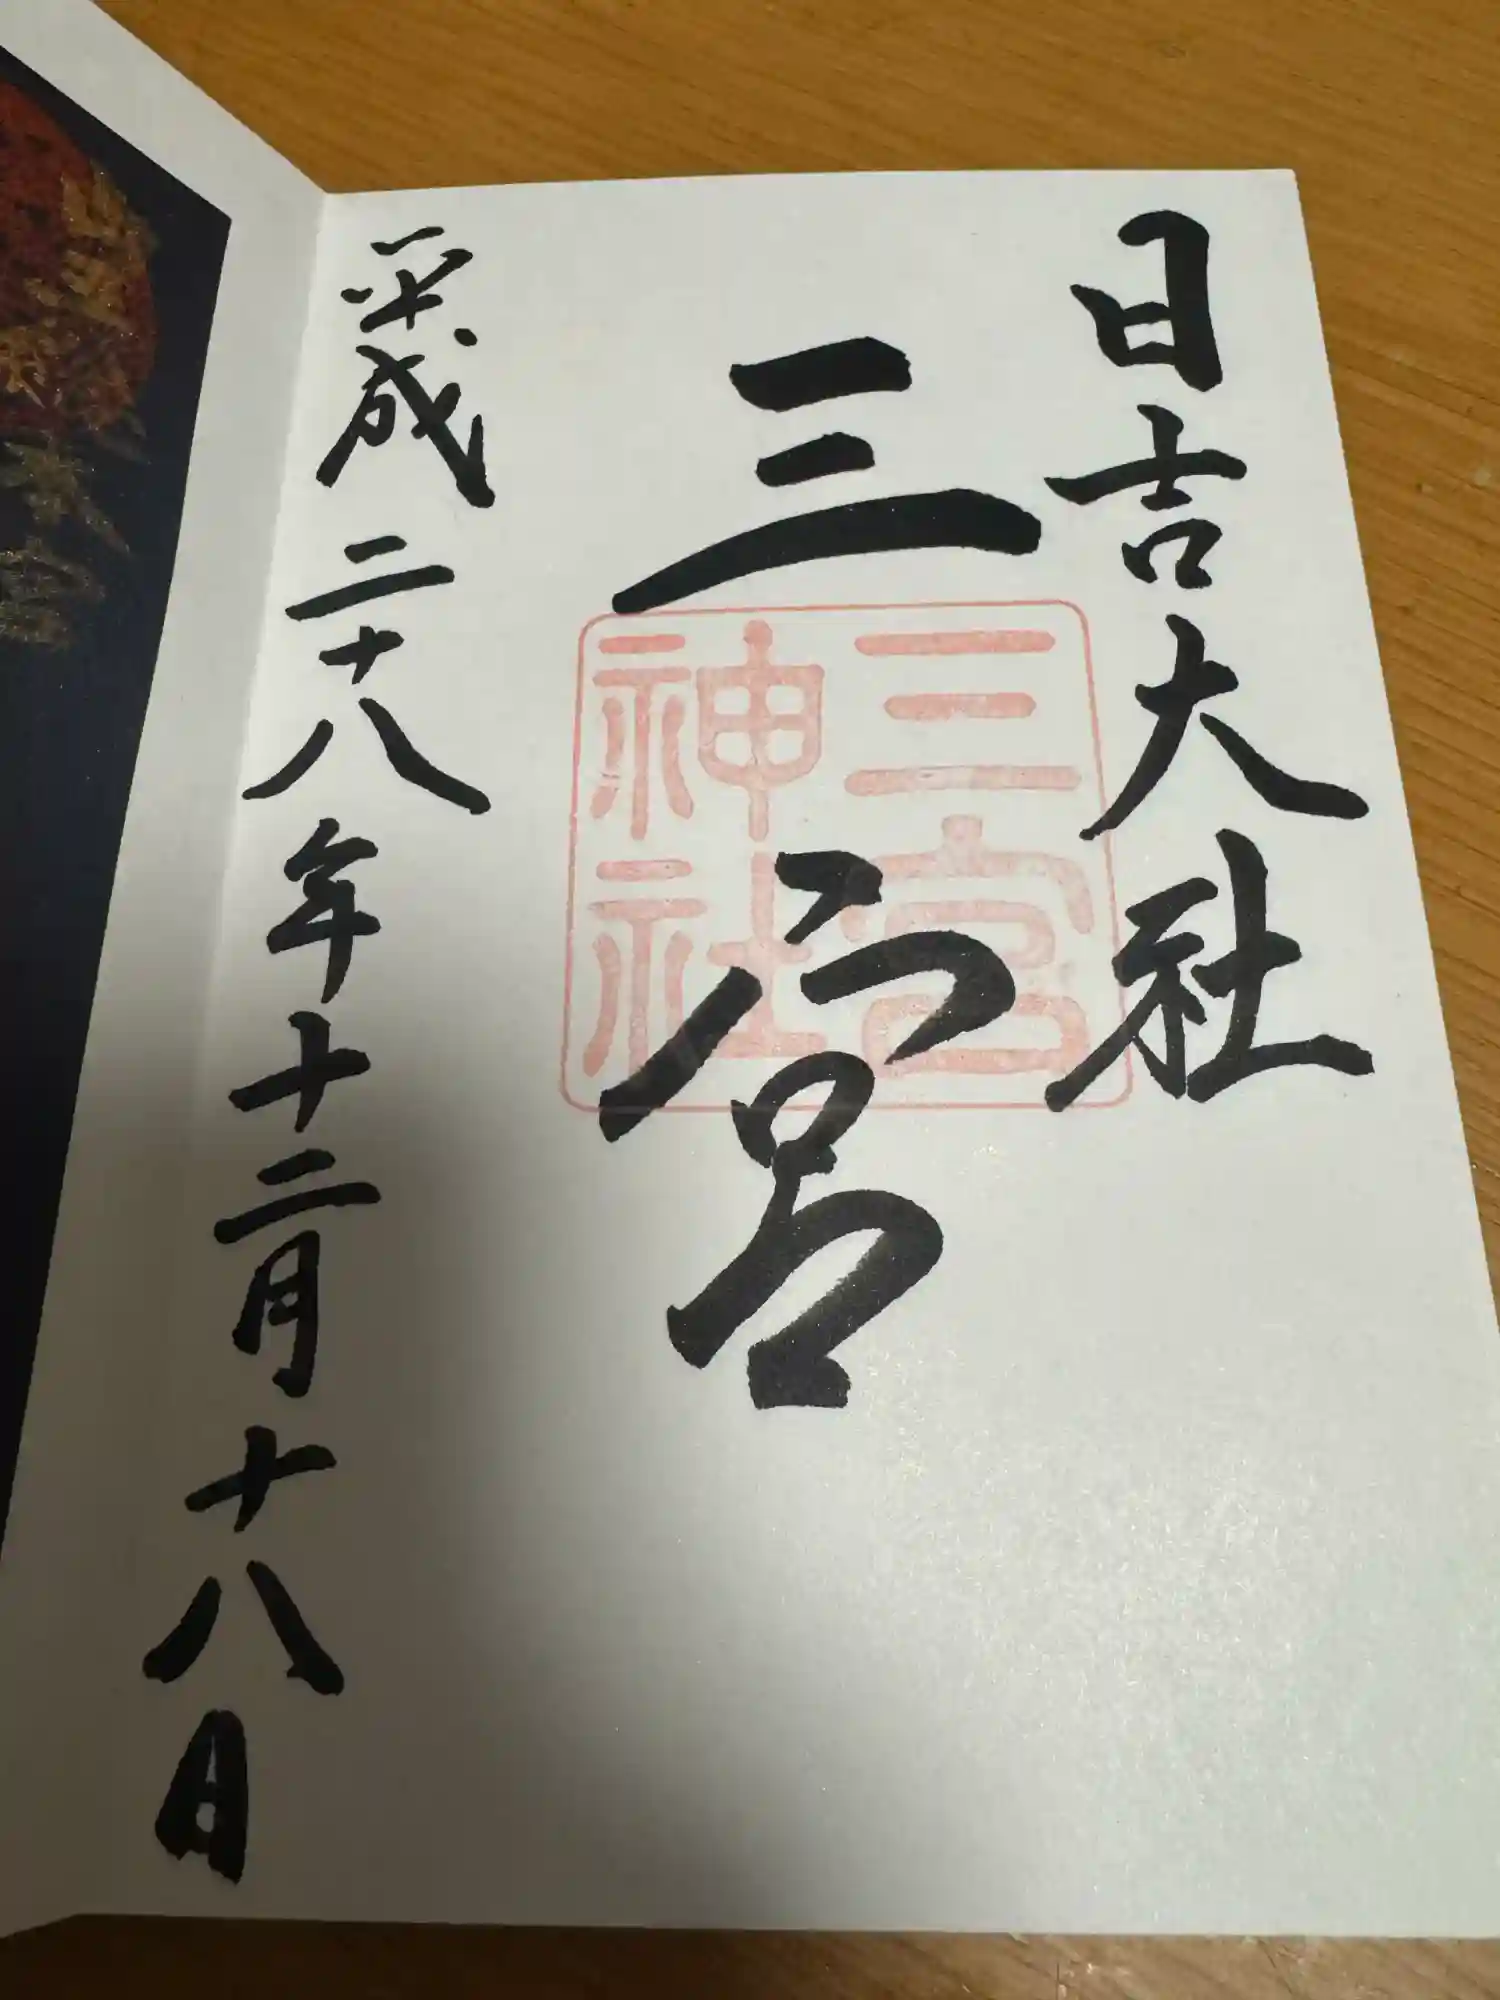 日吉大社
三宮
三宮
神社
平成二十八年十二月十八日